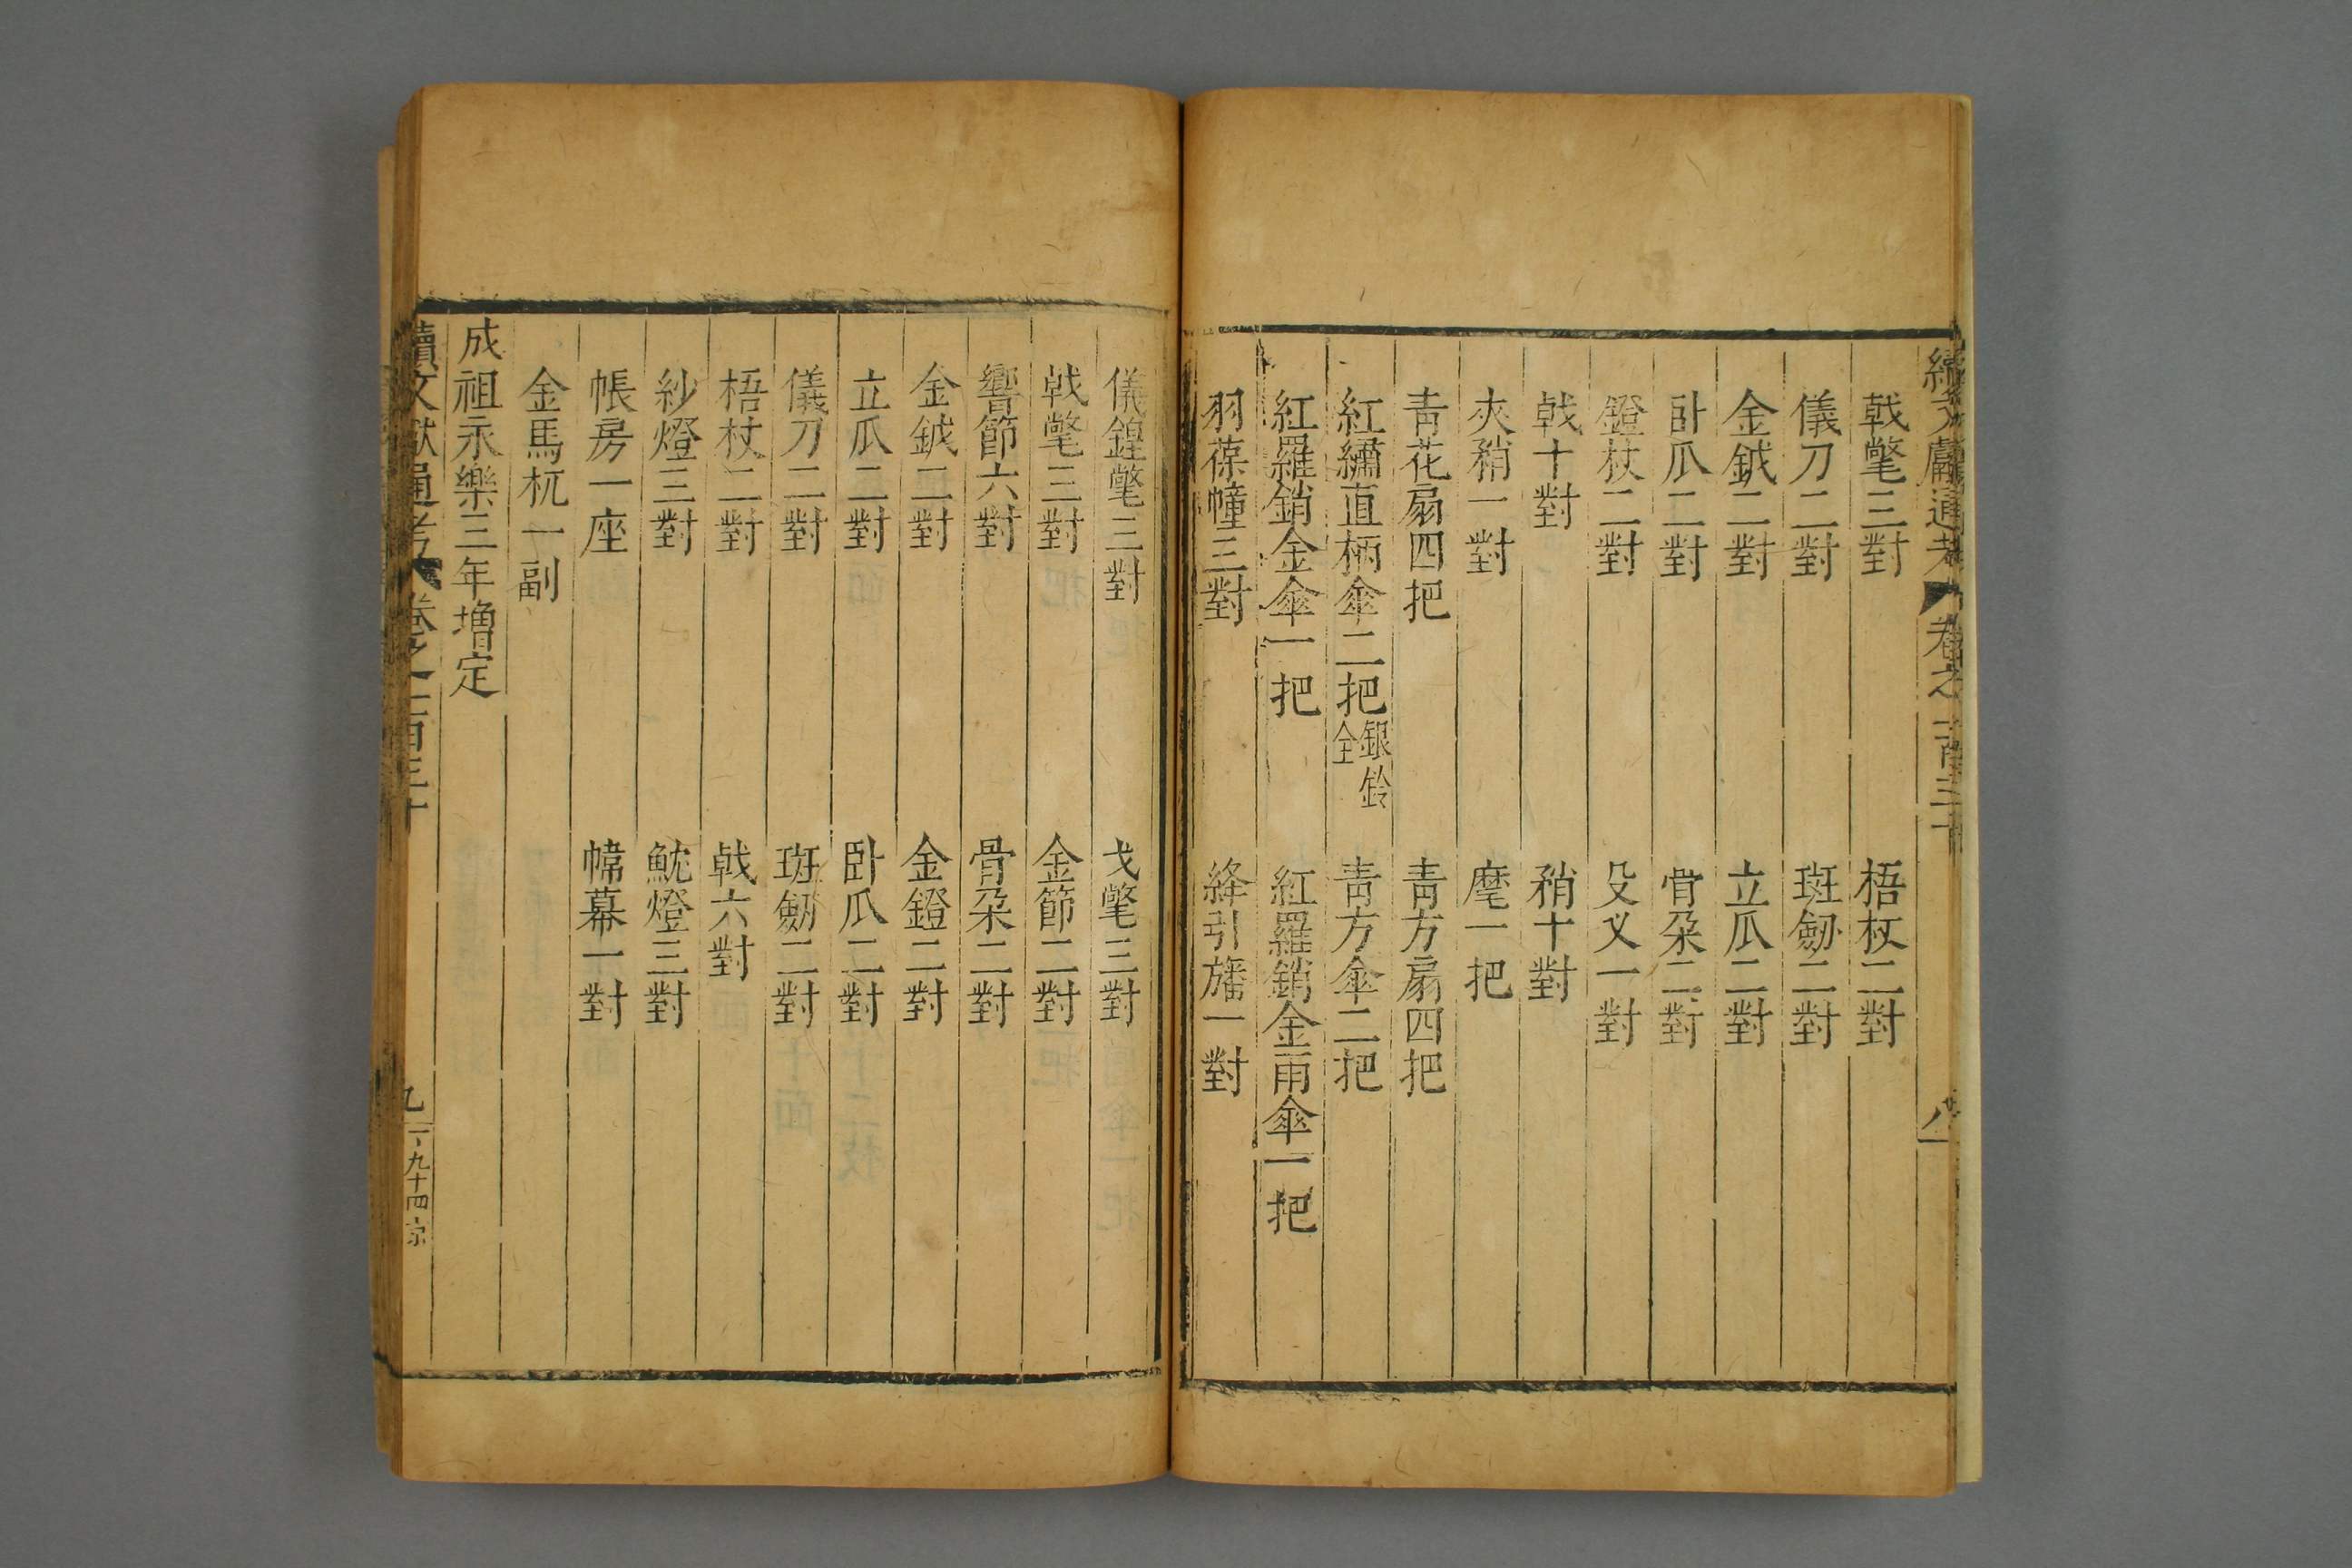 續文獻通考 卷之一百三十 八
戟氅三對 梧杖二對
儀刀二對 班劒二對
金鉞二對 立瓜二對
卧瓜二對 骨朶二對
鐙杖二對 殳叉一對
戟十對 矟十對
夾矟一對 麾一把
青花扇四把 青方扇四把
紅繡直柄傘二把 銀鈴全 青方傘二把
紅羅銷金傘一把 紅羅銷金雨傘一把
羽葆幢三對 絳引旛一對
儀鍠氅三對 戈氅三對
戟氅三對 金節二對
響節六對 骨朶二對
金鉞二對 金鐙二對
立瓜二對 卧瓜二對
儀刀二對 班劒二對
梧杖二對 戟六對
紗燈三對 魫燈三對
帳房一座 幃幕一對
金馬杌一副
成祖永樂三年增定
續文獻通考 卷之一百三十 九 九十四